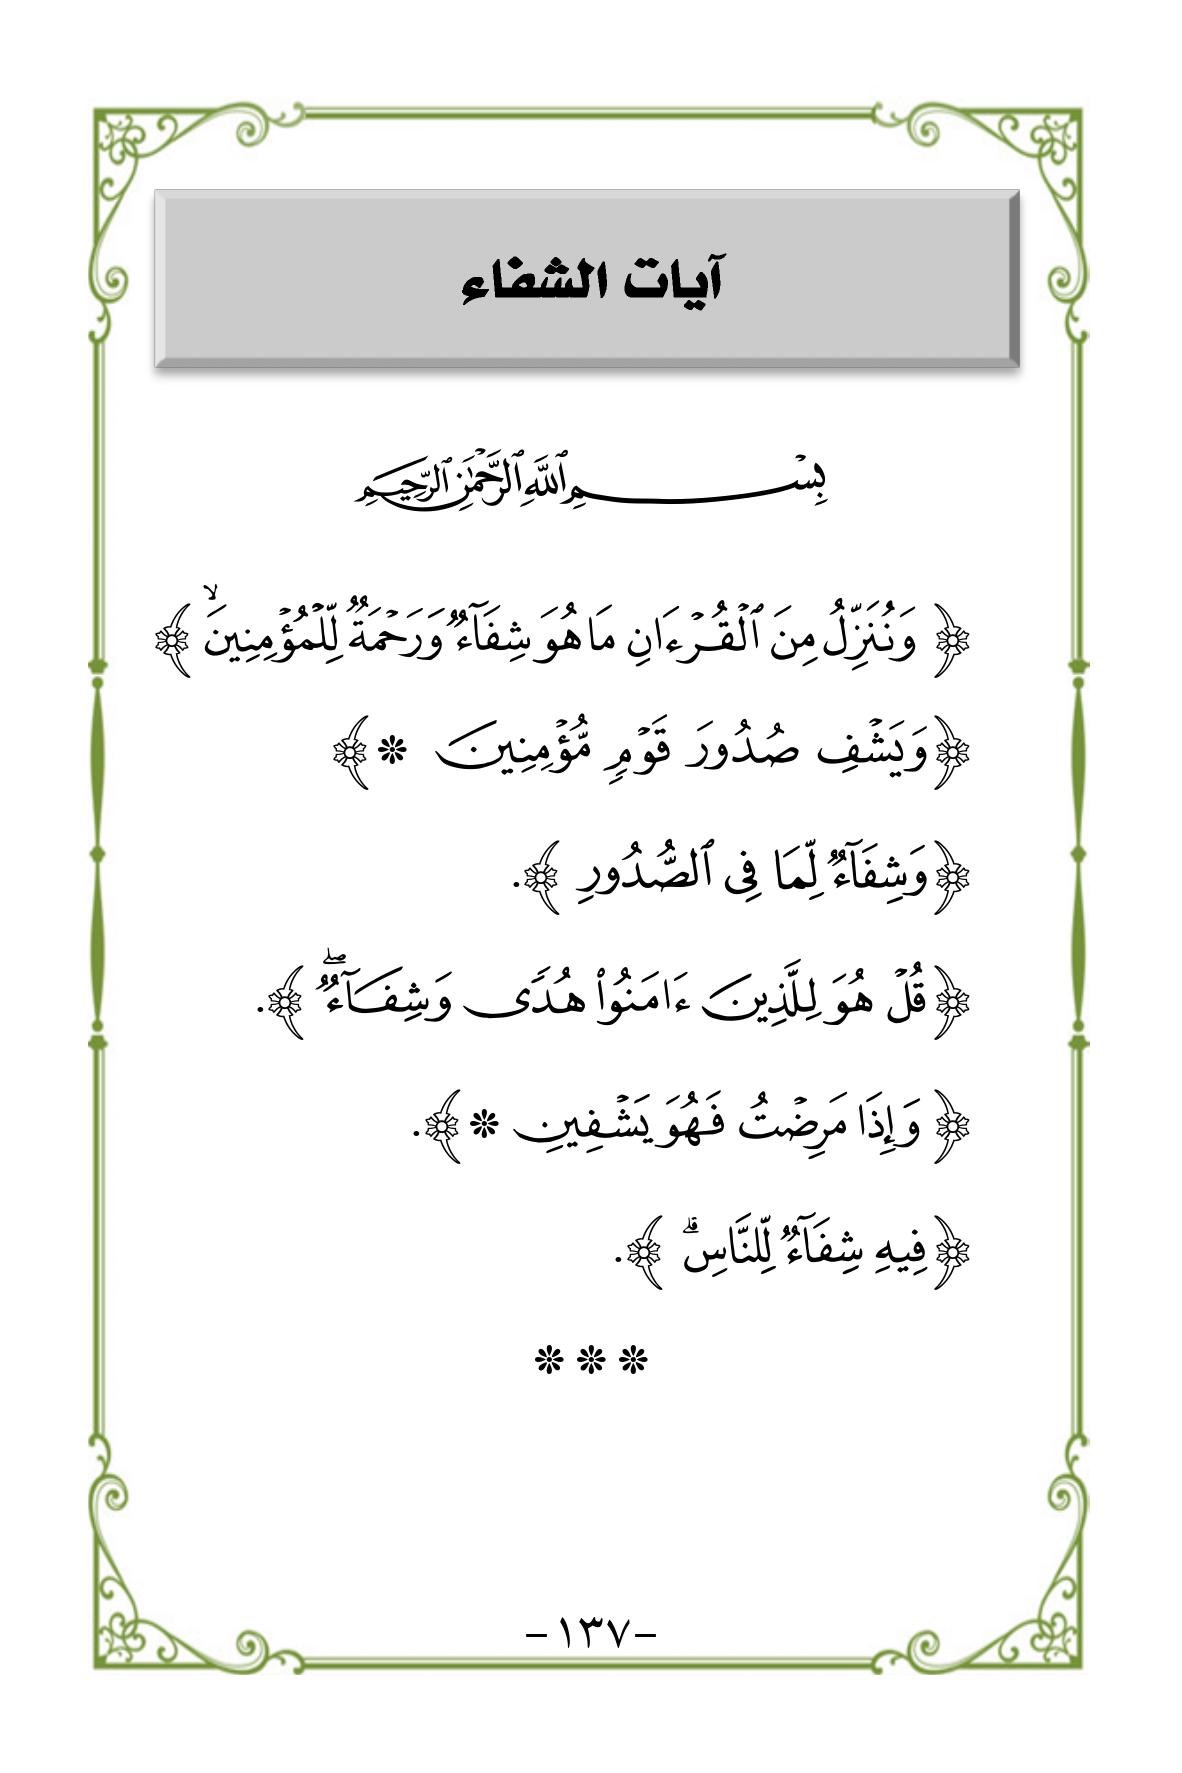 آيات الشفاء
بِسْمِ ٱللَّهِ ٱلرَّحْمَٰنِ ٱلرَّحِيمِ
﴿ وَنُنَزِّلُ مِنَ ٱلْقُرْءَانِ مَا هُوَ شِفَآءٌ وَرَحْمَةٌ لِّلْمُؤْمِنِينَۙ ﴾
﴿وَيَشْفِ صُدُورَ قَوْمٍ مُّؤْمِنِينَ ❊﴾
﴿وَشِفَآءٌ لِّمَا فِى ٱلصُّدُورِ ﴾.
﴿قُلْ هُوَ لِلَّذِينَ ءَامَنُوا۟ هُدًى وَشِفَآءٌۖ ﴾.
﴿ وَإِذَا مَرِضْتُ فَهُوَ يَشْفِينِ ❊﴾.
﴿فِيهِ شِفَآءٌ لِّلنَّاسِۗ ﴾.
❊ ❊ ❊
-١٣٧-